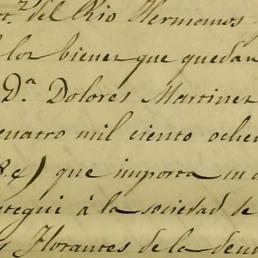 del Rio Hermanos
los bienes que quedan
D.ª Dolores Martinez
cuatro mil ciento oche
8.4) que importa su
tegui á la sociedad de
Florantes de la